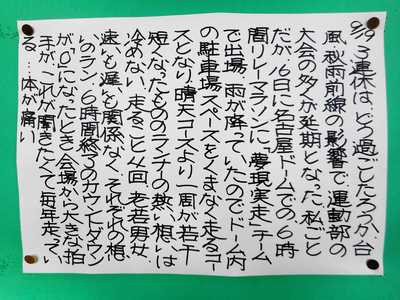 9/19 3連休は、どう過ごしたろうか、台
風、秋雨前線の影響で、運動部の
大会の多くが延期となった。私ごと
だが、16日に名古屋ドームでの、6時
間リレーマラソンに、「夢現実走」チーム
で出場、雨が降っていたので、ドーム内
の駐車場スペースをくまなく走るコー
スとなり、晴天コースより一周が若干
短くなったもののランナーの熱い想いは
冷めない。走ること44回、老若男女、
速いも遅いも関係なく、それぞれの想
いのラン、6時間終了のカウントダウン
が「0」になったとき、会場から大きな拍
手が、これが聞きたくて毎年走ってい
る…体が痛い